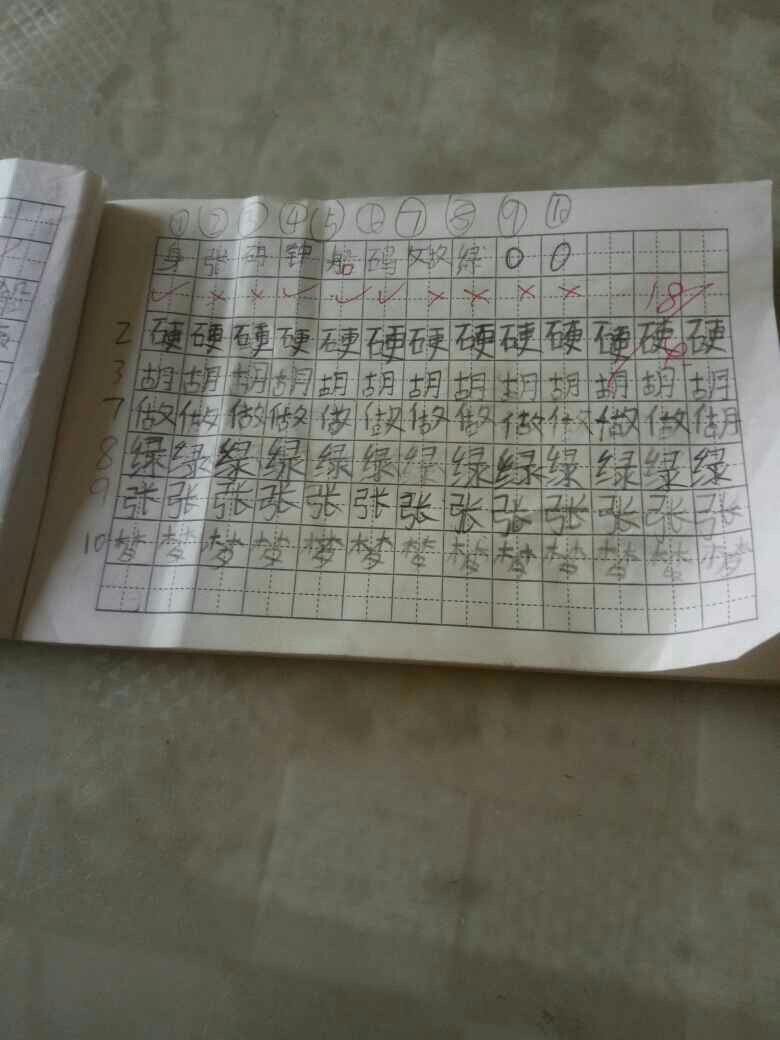 ① ② ③ ④ ⑤ ⑥ ⑦ ⑧ ⑨ ⑩
身 张 研 钟 船 码 绿 0 0
✓ × × ✓ ✓ ✓ × × × × 18
2 硬 硬 硬 硬 硬 硬 硬 硬 硬 硬 硬 硬 硬
3 胡 胡 胡 胡 胡 胡 胡 胡 胡 胡 胡 胡 胡
7 做 做 做 做 做 做 做 做 做 做 做 做 做
8 绿 绿 绿 绿 绿 绿 绿 绿 绿 绿 绿 绿 绿
9 张 张 张 张 张 张 张 张 张 张 张 张 张
10 梦 梦 梦 梦 梦 梦 梦 梦 梦 梦 梦 梦 梦